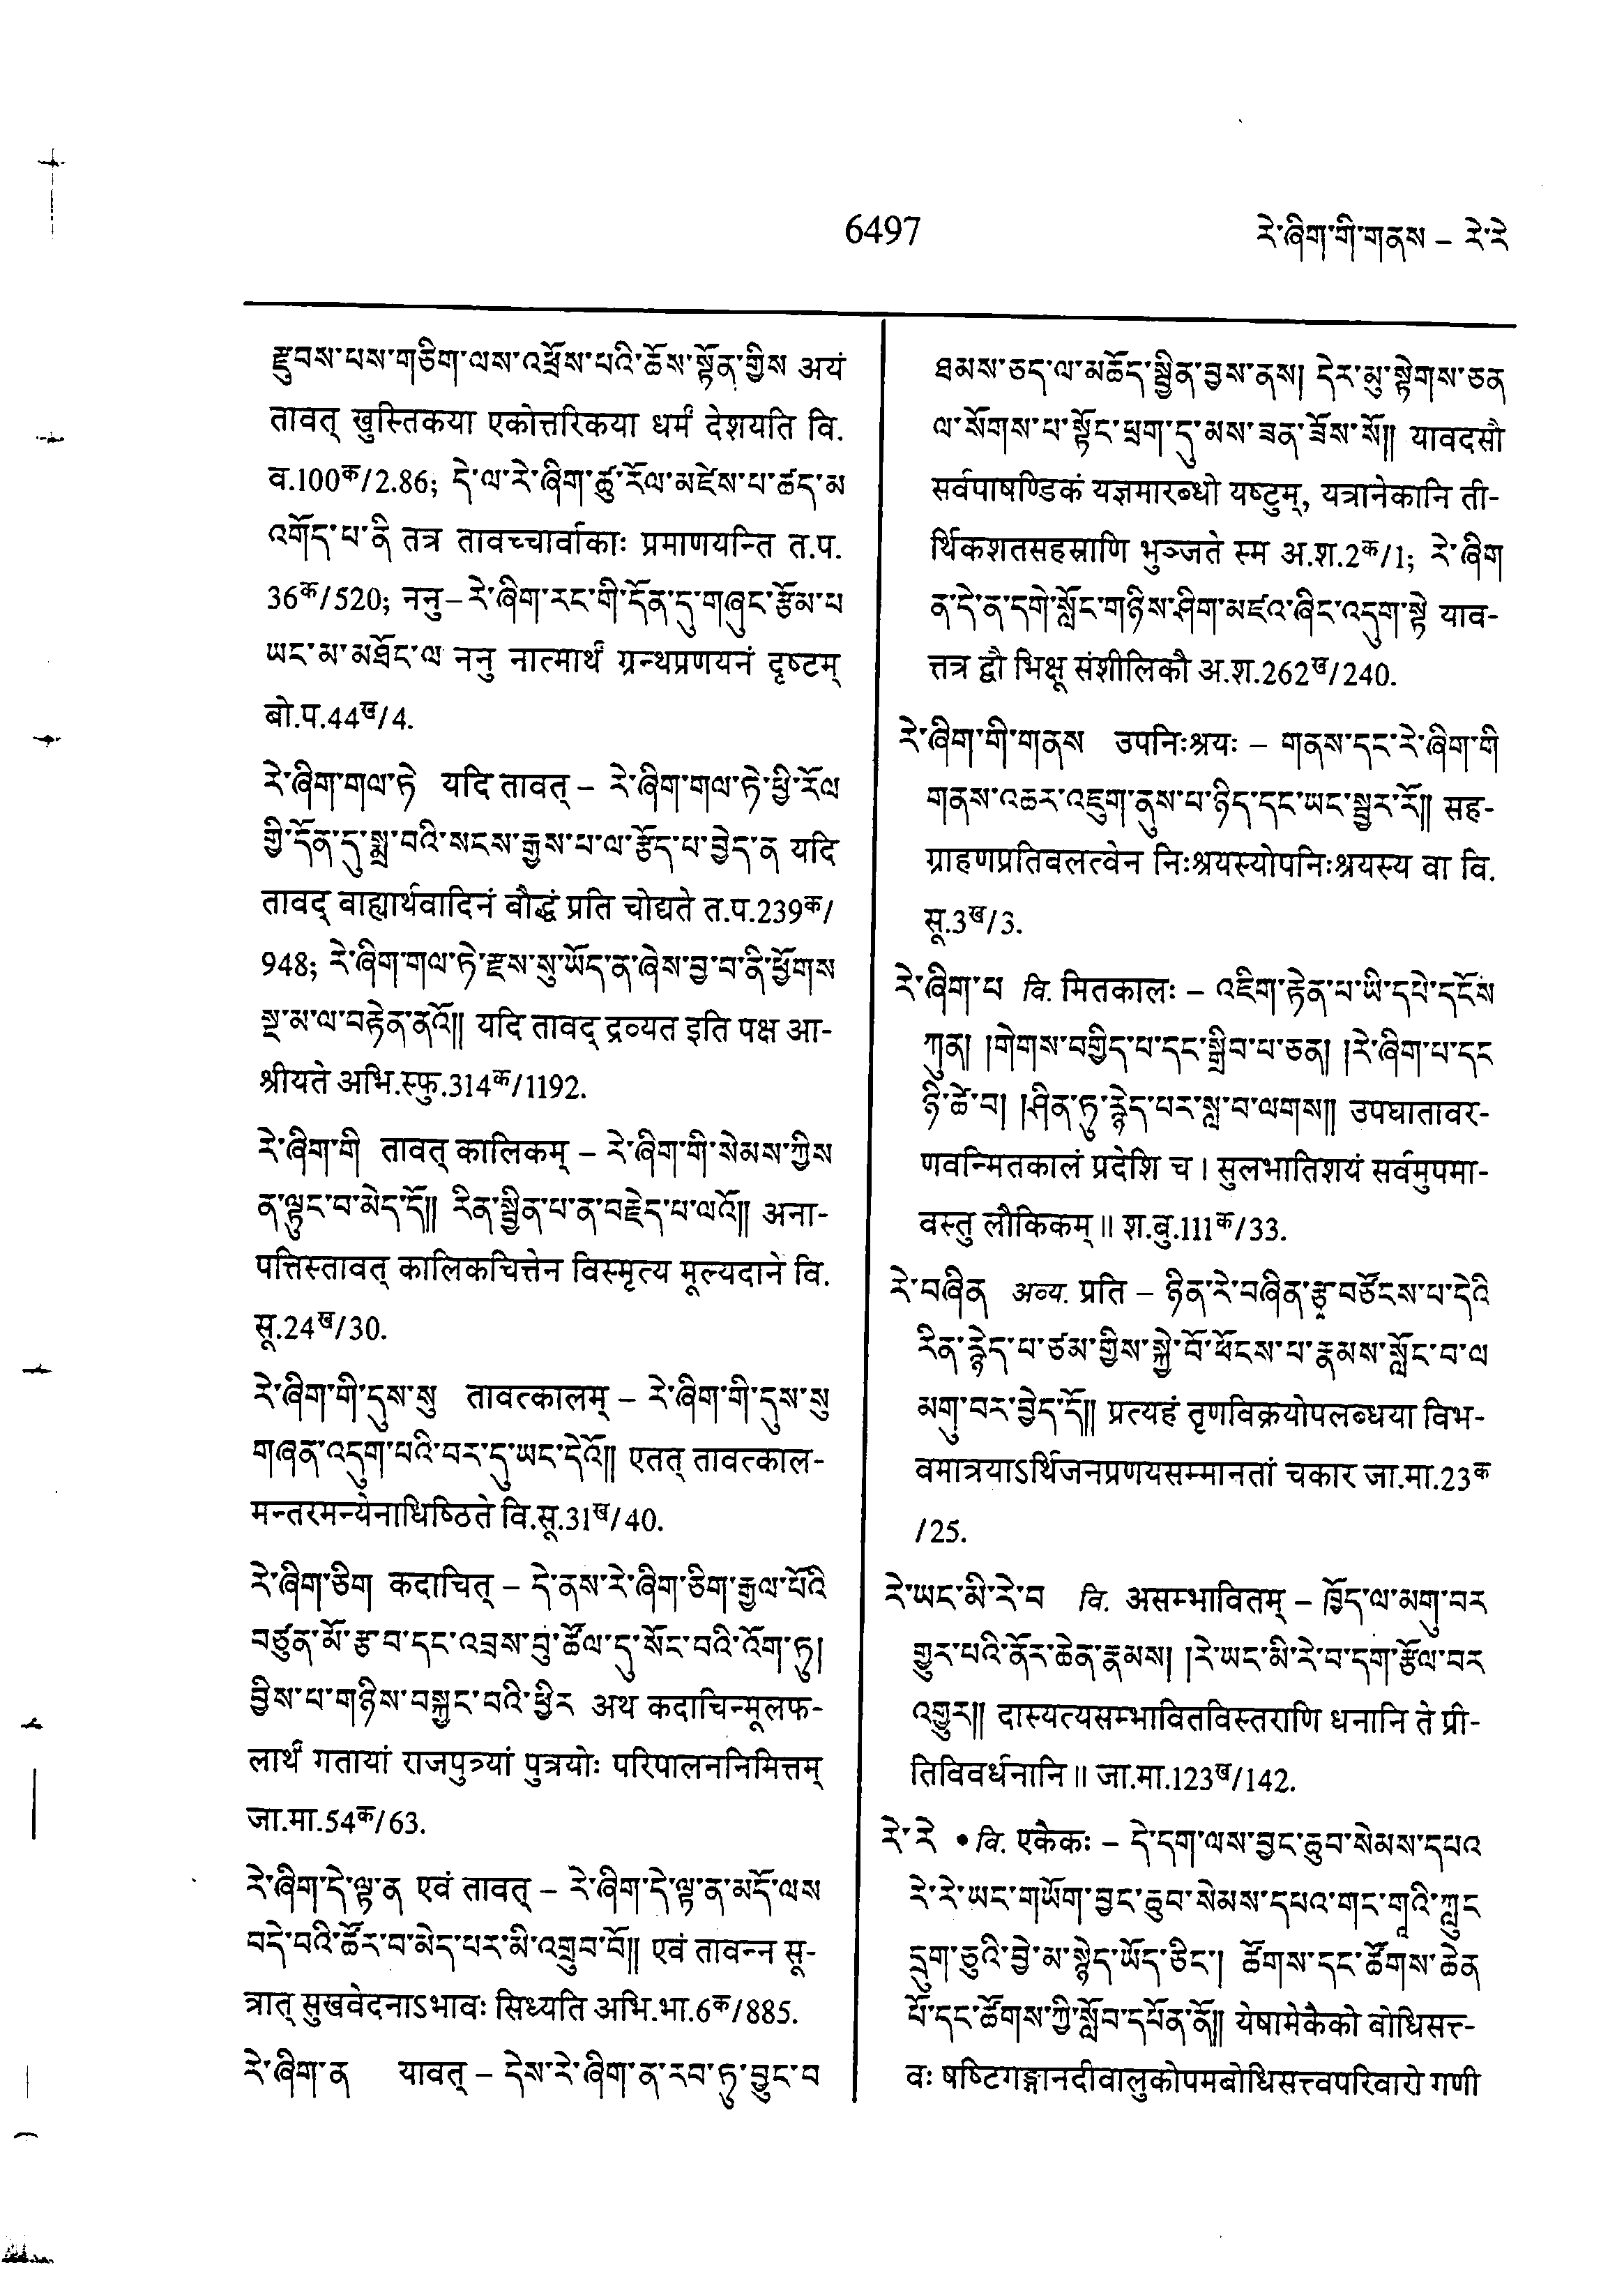 6497
རེ་ཞིག་གི་གནས – རེ་རེ
རྫུབས་པས་གཅིག་ལས་འཕྲོས་པའི་ཆོས་སྟོན་གྱིས अयं
तावत् खुस्तिकया एकोत्तरिकया धर्मं देशयति वि.
व.100क/2.86; དེ་ལ་རེ་ཞིག་ཚུ་རོལ་མཛེས་པ་ཚད་མ
འགོད་པ་ནི तत्र तावच्चार्वाकाः प्रमाणयन्ति त.प.
36क/520; ननु – རེ་ཞིག་རང་གི་དོན་དུ་གཞུང་རྩོམ་པ
ཡང་མ་མཐོང་ལ ननु नात्मार्थं ग्रन्थप्रणयनं दृष्टम्
बो.प.44ख/4.
རེ་ཞིག་གལ་ཏེ यदि तावत् – རེ་ཞིག་གལ་ཏེ་ཕྱི་རོལ
གྱི་དོན་དུ་སྨྲ་བའི་སངས་རྒྱས་པ་ལ་རྩོད་པ་བྱེད་ན यदि
तावद् बाह्यार्थवादिनं बौद्धं प्रति चोद्यते त.प.239क/
948; རེ་ཞིག་གལ་ཏེ་རྫས་སུ་ཡོད་ན་ཞེས་བྱ་བ་ནི་ཕྱོགས
སྔ་མ་ལ་བརྟེན་ནའོ།། यदि तावद् द्रव्यत इति पक्ष आ-
श्रीयते अभि.स्फु.314क/1192.
རེ་ཞིག་གི तावत् कालिकम् – རེ་ཞིག་གི་སེམས་ཀྱིས
ན་ལྟུང་བ་མེད་དོ།། རིན་སྦྱིན་པ་ན་བརྗེད་པ་ལའོ།། अना-
पत्तिस्तावत् कालिकचित्तेन विस्मृत्य मूल्यदाने वि.
सू.24ख/30.
རེ་ཞིག་གི་དུས་སུ तावत्कालम् – རེ་ཞིག་གི་དུས་སུ
གཞན་འདུག་པའི་བར་དུ་ཡང་དེའོ།། एतत् तावत्काल-
मन्तरमन्येनाधिष्ठिते वि.सू.31ख/40.
རེ་ཞིག་ཅིག कदाचित् – དེ་ནས་རེ་ཞིག་ཅིག་རྒྱལ་པོའི
བཙུན་མོ་རྩ་བ་དང་འབྲས་བུ་ཚོལ་དུ་སོང་བའི་འོག་ཏུ།
བྱིས་པ་གཉིས་བསྐྱང་བའི་ཕྱིར अथ कदाचिन्मूलफ-
लार्थं गतायां राजपुत्र्यां पुत्रयोः परिपालननिमित्तम्
जा.मा.54क/63.
རེ་ཞིག་དེ་ལྟ་ན एवं तावत् – རེ་ཞིག་དེ་ལྟ་ན་མདོ་ལས
བདེ་བའི་ཚོར་བ་མེད་པར་མི་འགྲུབ་བོ།། एवं तावन्न सू-
त्रात् सुखवेदनाऽभावः सिध्यति अभि.भा.6क/885.
རེ་ཞིག་ན यावत् – དེས་རེ་ཞིག་ན་རབ་ཏུ་བྱུང་བ
ཐམས་ཅད་ལ་མཆོད་སྦྱིན་བྱས་ནས། དེར་མུ་སྟེགས་ཅན
ལ་སོགས་པ་སྟོང་ཕྲག་དུ་མས་ཟན་ཟོས་སོ།། यावदसौ
सर्वपाषण्डिकं यज्ञमारब्धो यष्टुम्, यत्रानेकानि ती-
र्थिकशतसहस्राणि भुञ्जते स्म अ.श.2क/1; རེ་ཞིག
ན་དེ་ན་དགེ་སློང་གཉིས་ཤིག་མཛའ་ཞིང་འདུག་སྟེ याव-
त्तत्र द्वौ भिक्षू संशीलिकौ अ.श.262ख/240.
རེ་ཞིག་གི་གནས उपनिःश्रयः – གནས་དང་རེ་ཞིག་གི
གནས་འཆར་འཇུག་ནུས་པ་ཉིད་དང་ཡང་སྦྱར་རོ།། सह-
ग्राहणप्रतिबलत्वेन निःश्रयस्योपनिःश्रयस्य वा वि.
सू.3ख/3.
རེ་ཞིག་པ वि. मितकालः – འཇིག་རྟེན་པ་ཡི་དཔེ་དངོས
ཀུན། །གེགས་བགྱིད་པ་དང་སྒྲིབ་པ་ཅན། །རེ་ཞིག་པ་དང
ཉི་ཚེ་བ། །ཤིན་ཏུ་རྙེད་པར་སླ་བ་ལགས།། उपघातावर-
णवन्मितकालं प्रदेशि च । सुलभातिशयं सर्वमुपमा-
वस्तु लौकिकम् ॥ श.बु.111क/33.
རེ་བཞིན अव्य. प्रति – ཉིན་རེ་བཞིན་རྩྭ་བཙོངས་པ་དེའི
རིན་རྙེད་པ་ཙམ་གྱིས་སྐྱེ་བོ་ཕོངས་པ་རྣམས་སློང་བ་ལ
མགུ་བར་བྱེད་དོ།། प्रत्यहं तृणविक्रयोपलब्धया विभ-
वमात्रयाऽर्थिजनप्रणयसम्मानतां चकार जा.मा.23क
/25.
རེ་ཡང་མི་རེ་བ वि. असम्भावितम् – ཁྱོད་ལ་མགུ་བར
གྱུར་པའི་ནོར་ཆེན་རྣམས། །རེ་ཡང་མི་རེ་བ་དག་རྩོལ་བར
འགྱུར།། दास्यत्यसम्भावितविस्तराणि धनानि ते प्री-
तिविवर्धनानि ॥ जा.मा.123ख/142.
རེ་རེ • वि. एकैकः – དེ་དག་ལས་བྱང་ཆུབ་སེམས་དཔའ
རེ་རེ་ཡང་གཡོག་བྱང་ཆུབ་སེམས་དཔའ་གང་གཱའི་ཀླུང
དྲུག་ཅུའི་བྱེ་མ་སྙེད་ཡོད་ཅིང་། ཚོགས་དང་ཚོགས་ཆེན
པོ་དང་ཚོགས་ཀྱི་སློབ་དཔོན་ནོ།། येषामेकैको बोधिसत्त-
वः षष्टिगङ्गानदीवालुकोपमबोधिसत्त्वपरिवारो गणी